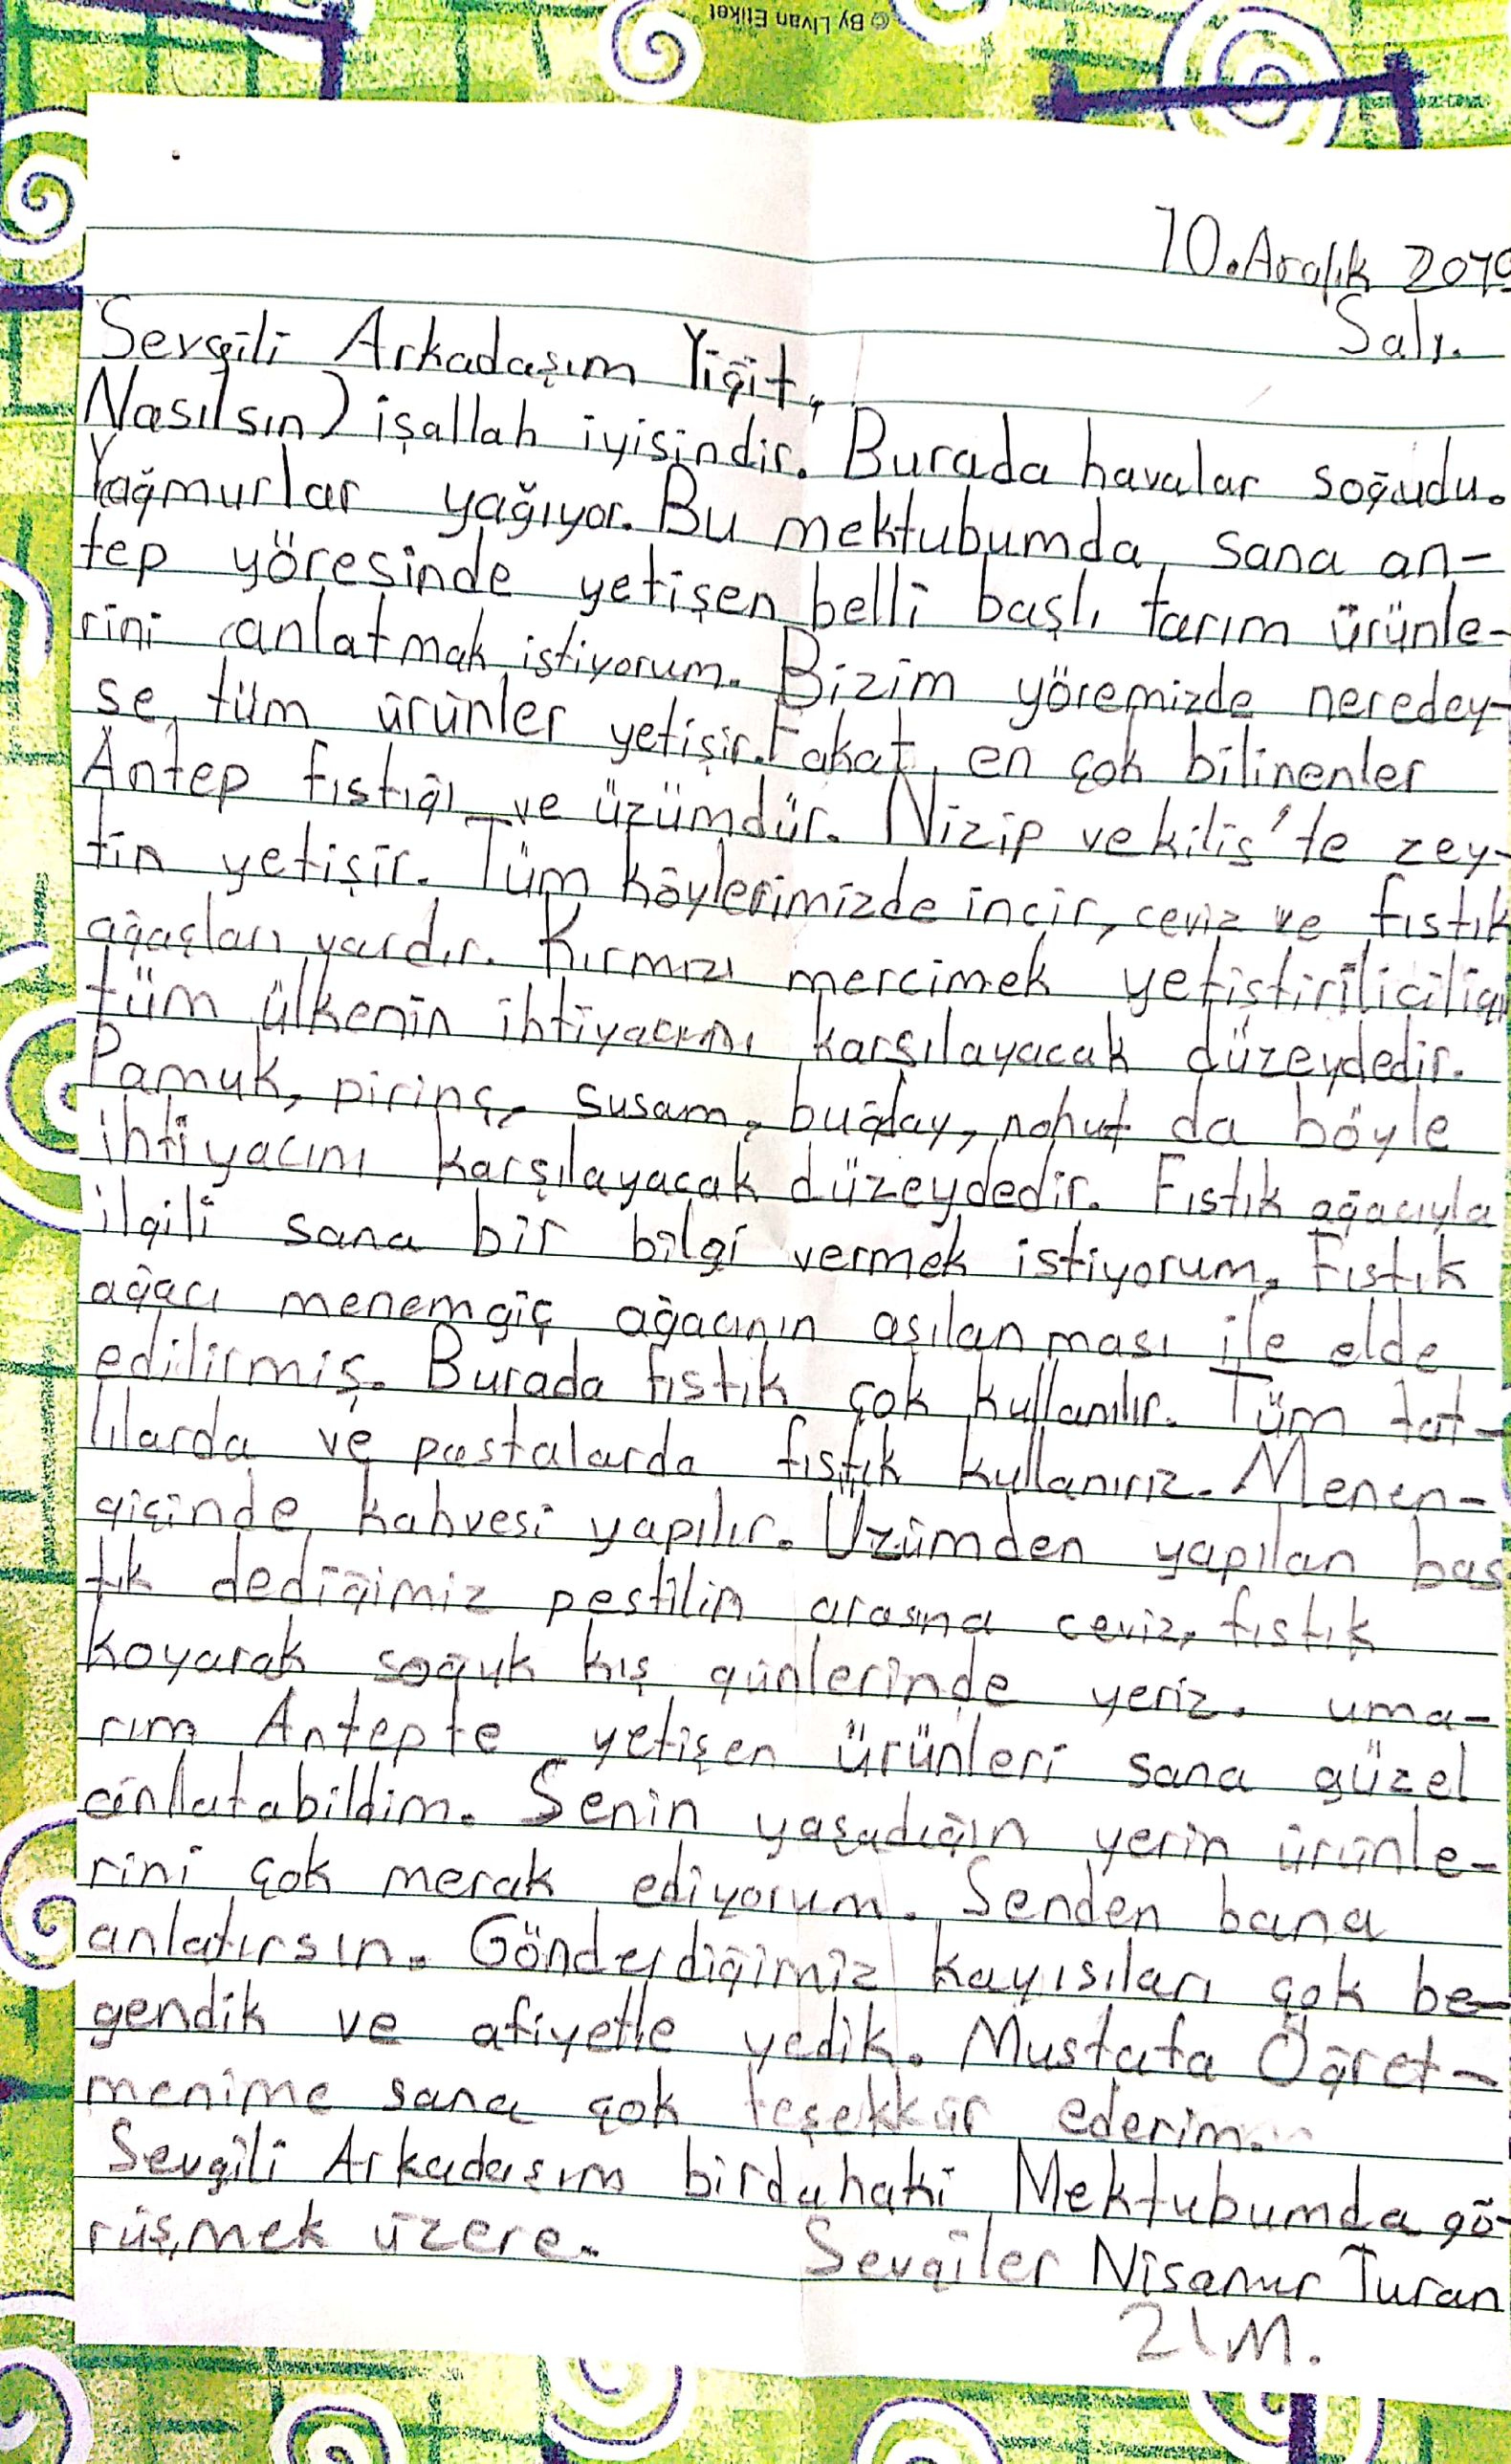 © By Livan Etiket
10.Aralık 2019
Salı.
Sevgili Arkadaşım Yiğit,
Nasılsın? işallah iyisindir. Burada havalar soğudu.
Yağmurlar yağıyor. Bu mektubumda, sana an-
tep yöresinde yetişen belli başlı tarım ürünle-
rini anlatmak istiyorum. Bizim yöremizde neredey-
se, tüm ürünler yetişir. Fakat, en çok bilinenler
Antep fıstığı ve üzümdür. Nizip ve kilis'te zey-
tin yetişir. Tüm köylerimizde incir, ceviz ve fıstık
ağaçları vardır. Kırmızı mercimek yetiştiriliciliği
tüm ülkenin ihtiyacını karşılayacak düzeydedir.
Pamuk, pirinç, susam, buğday, nohut da böyle
ihtiyacını karşılayacak düzeydedir. Fıstık ağacıyla
ilgili sana bir bilgi vermek istiyorum. Fıstık
ağacı menemgiç ağacının aşılanması ile elde
edilirmiş. Burada fıstık çok kullanılır. Tüm tat-
lılarda ve pastalarda fıstık kullanırız. Menen-
giçinde kahvesi yapılır. Üzümden yapılan bas
tık dediğimiz pestilin arasına ceviz, fıstık
koyarak soğuk kış günlerinde yeriz. uma-
rım Antepte yetişen ürünleri sana güzel
anlatabildim. Senin yaşadığın yerin ürünle-
rini çok merak ediyorum. Senden bana
anlatırsın. Gönderdiğimiz kayısıları çok be-
gendik ve afiyetle yedik. Mustafa Öğret-
menime sana çok teşekkür ederim.
Sevgili Arkadaşım birdahaki Mektubumda gö-
rüşmek üzere. Sevgiler Nisanur Turan
2\M.